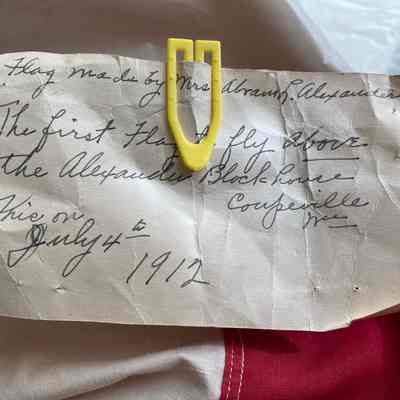 Flag made by Mrs. Abram L. Alexander
The first Flag to fly Above
the Alexander Blockhouse
Coupeville
Wn
This on
July 4th
1912